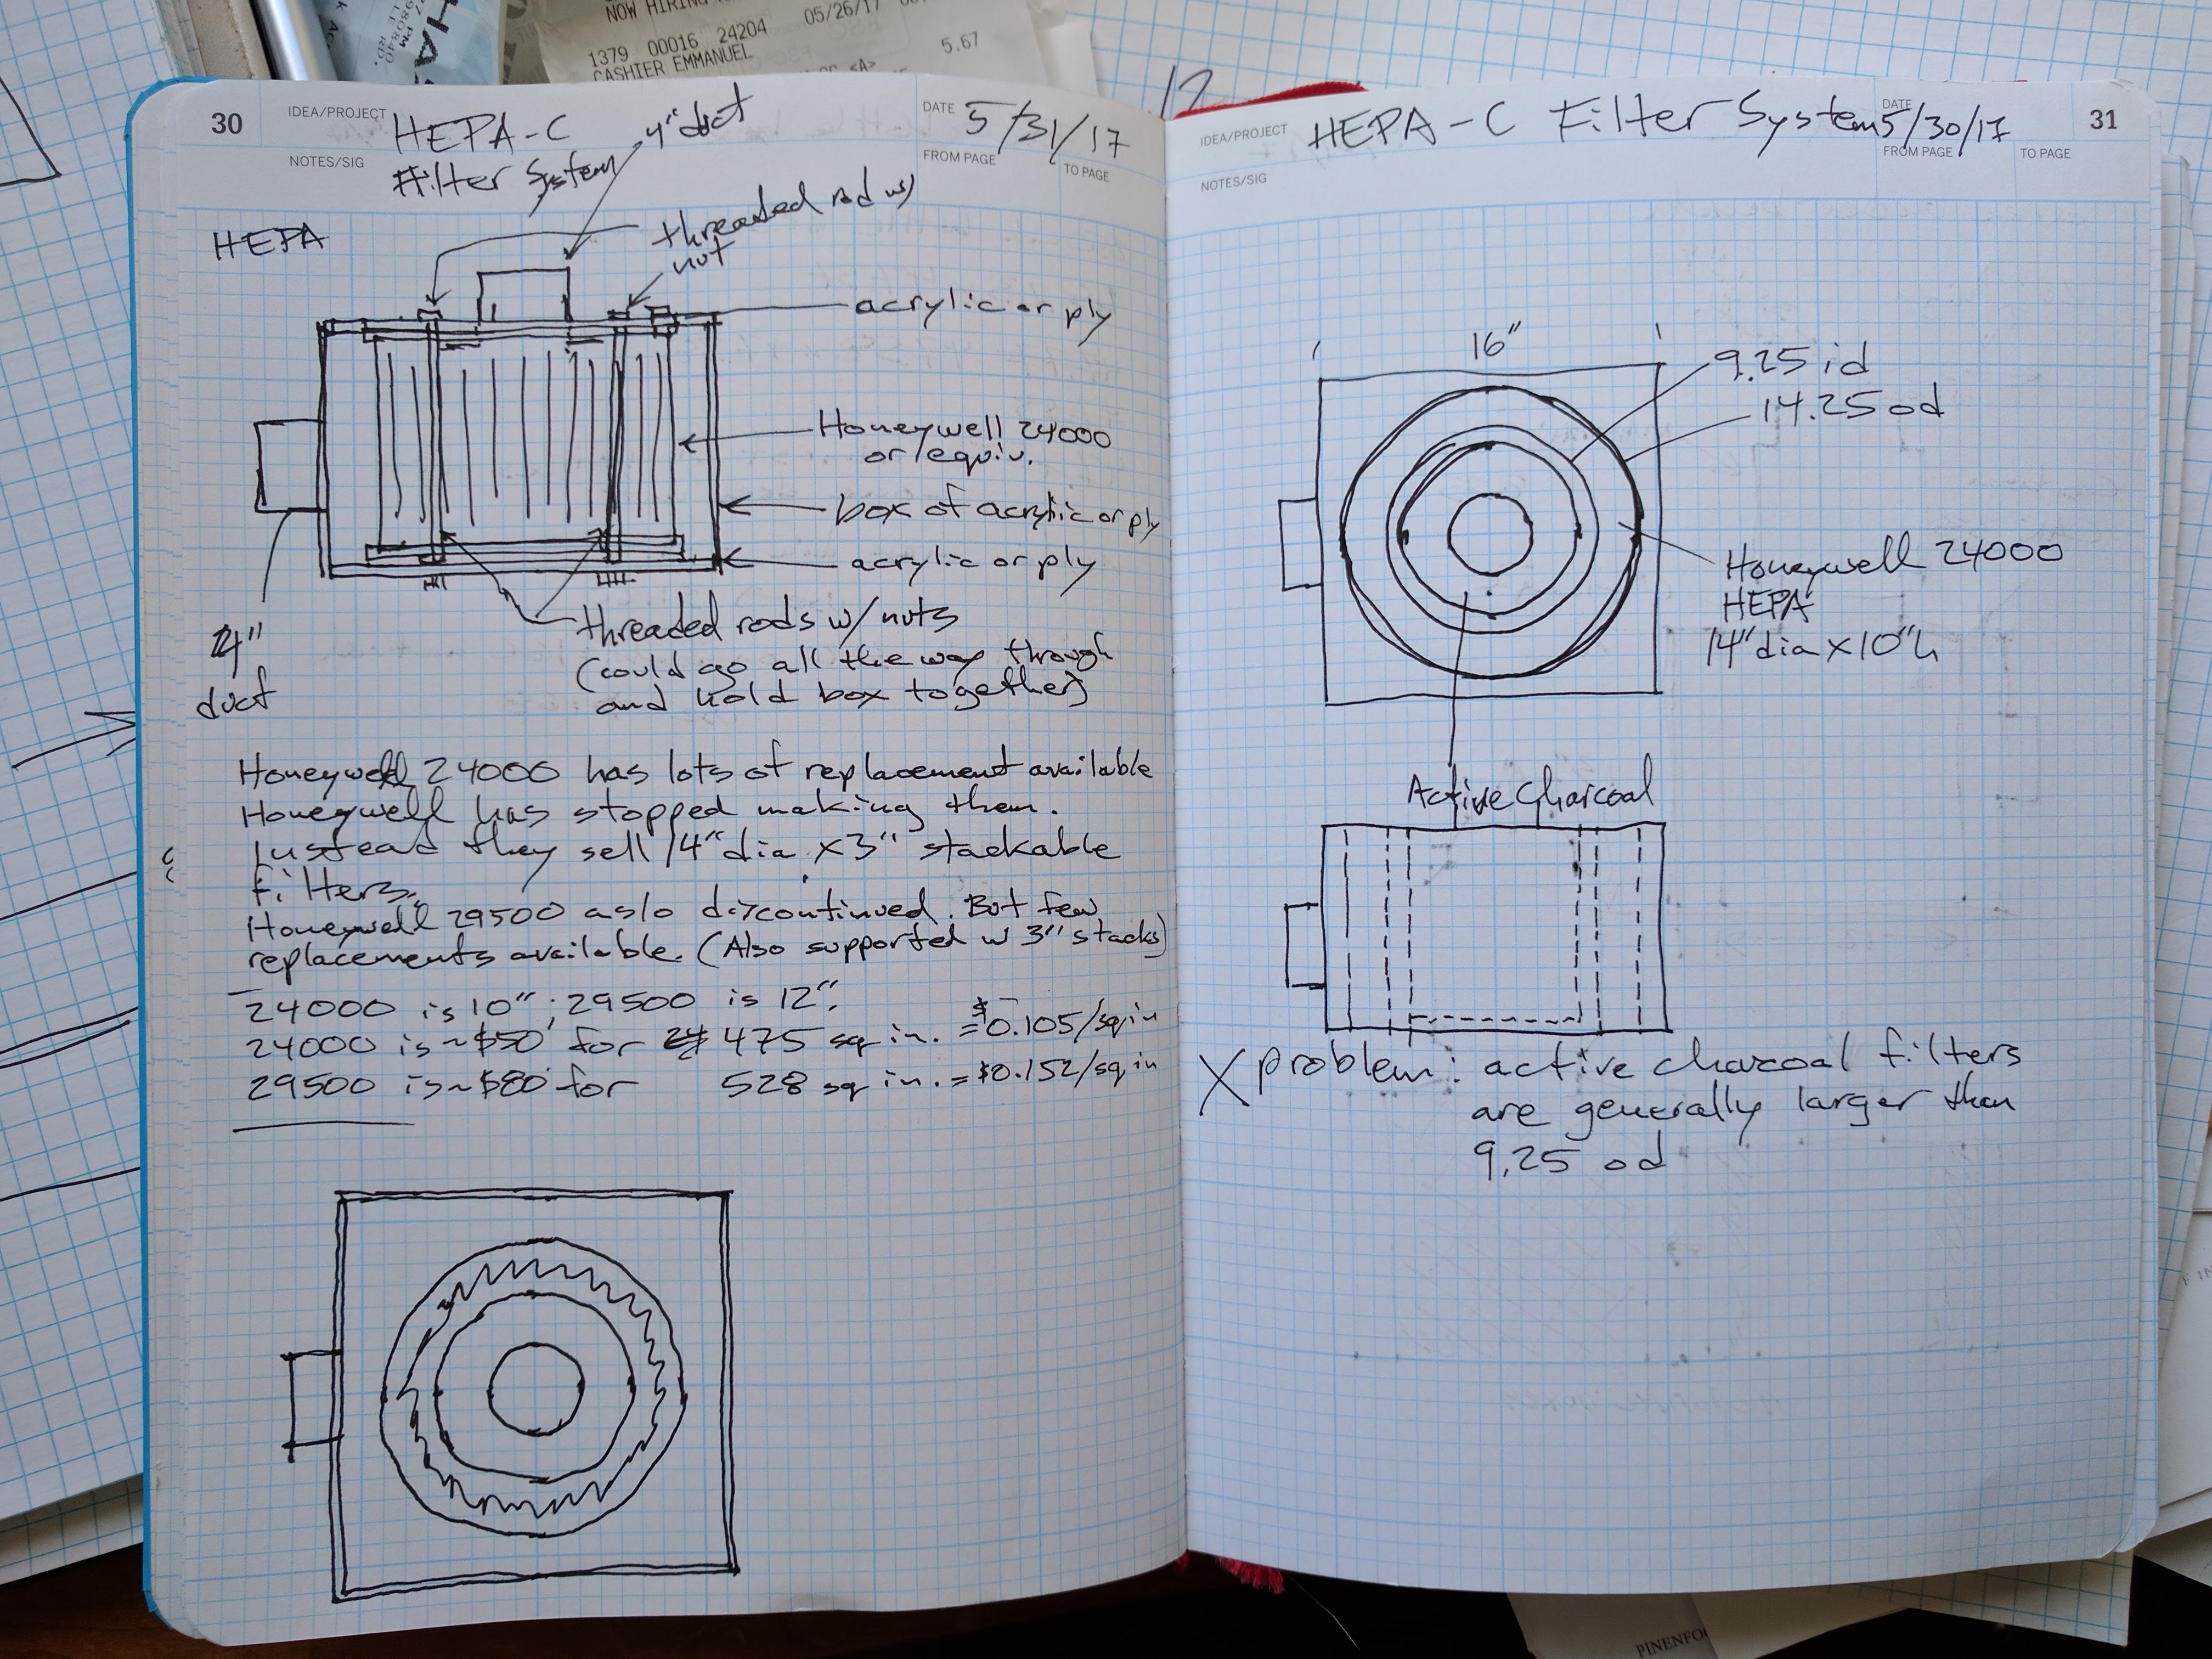 NOW HIRING
05/26/17
1379 00016 24204
5.67
CASHIER EMMANUEL
<A>
30
IDEA/PROJECT
HEPA-C
Filter System
NOTES/SIG
4" duct
DATE
5/31/17
FROM PAGE
TO PAGE
HEPA
threaded rod w/
nut
acrylic or ply
Honeywell 24000
or equiv.
box of acrylic or ply
acrylic or ply
4"
duct
threaded rods w/ nuts
(could go all the way through
and hold box together)
Honeywell 24000 has lots of replacement available
Honeywell has stopped making them.
Instead they sell 14" dia x 3" stackable
filters.
Honeywell 29500 aslo discontinued. But few
replacements available. (Also supported w 3" stacks)
24000 is 10"; 29500 is 12".
24000 is ~$50 for 475 sq in. = $0.105/sq in
29500 is ~$80 for 528 sq in. = $0.152/sq in
IDEA/PROJECT
HEPA-C Filter System
DATE
5/30/17
31
FROM PAGE
TO PAGE
NOTES/SIG
16"
9.25 id
14.25 od
Honeywell 24000
HEPA
14" dia x 10" h
Active Charcoal
X problem: active charcoal filters
are generally larger than
9.25 od
12